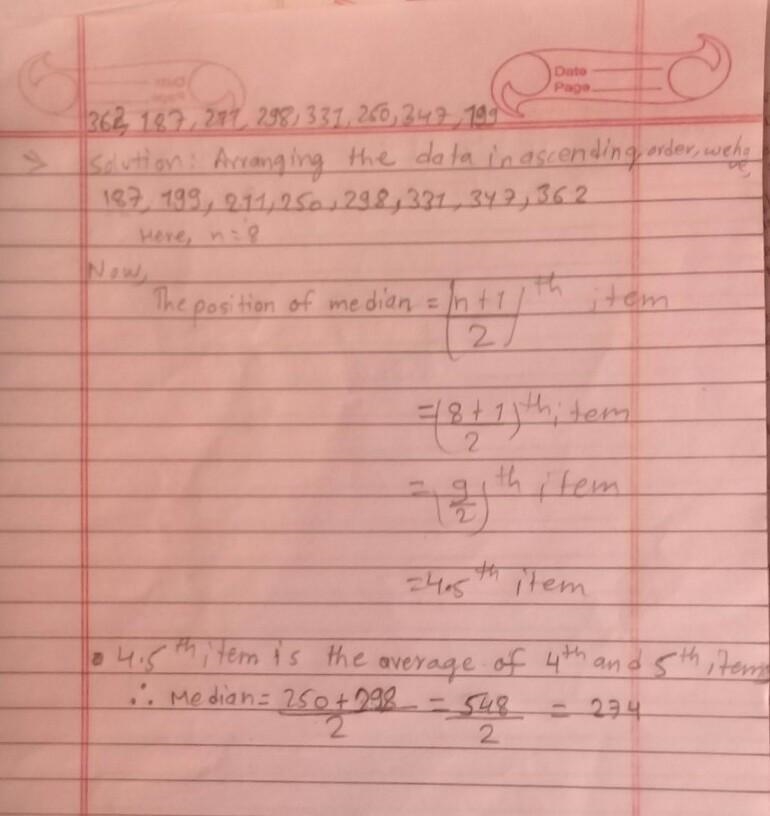 Date
Page
362, 187, 211, 298, 331, 250, 347, 199
Solution: Arranging the data in ascending order, we have,
187, 199, 211, 250, 298, 331, 347, 362
Here, n = 8
Now,
The position of median = (n+1/2)th item
= (8+1/2)th item
= (9/2)th item
= 4.5th item
4.5th item is the average of 4th and 5th item
∴ Median = 250+298/2 = 548/2 = 274